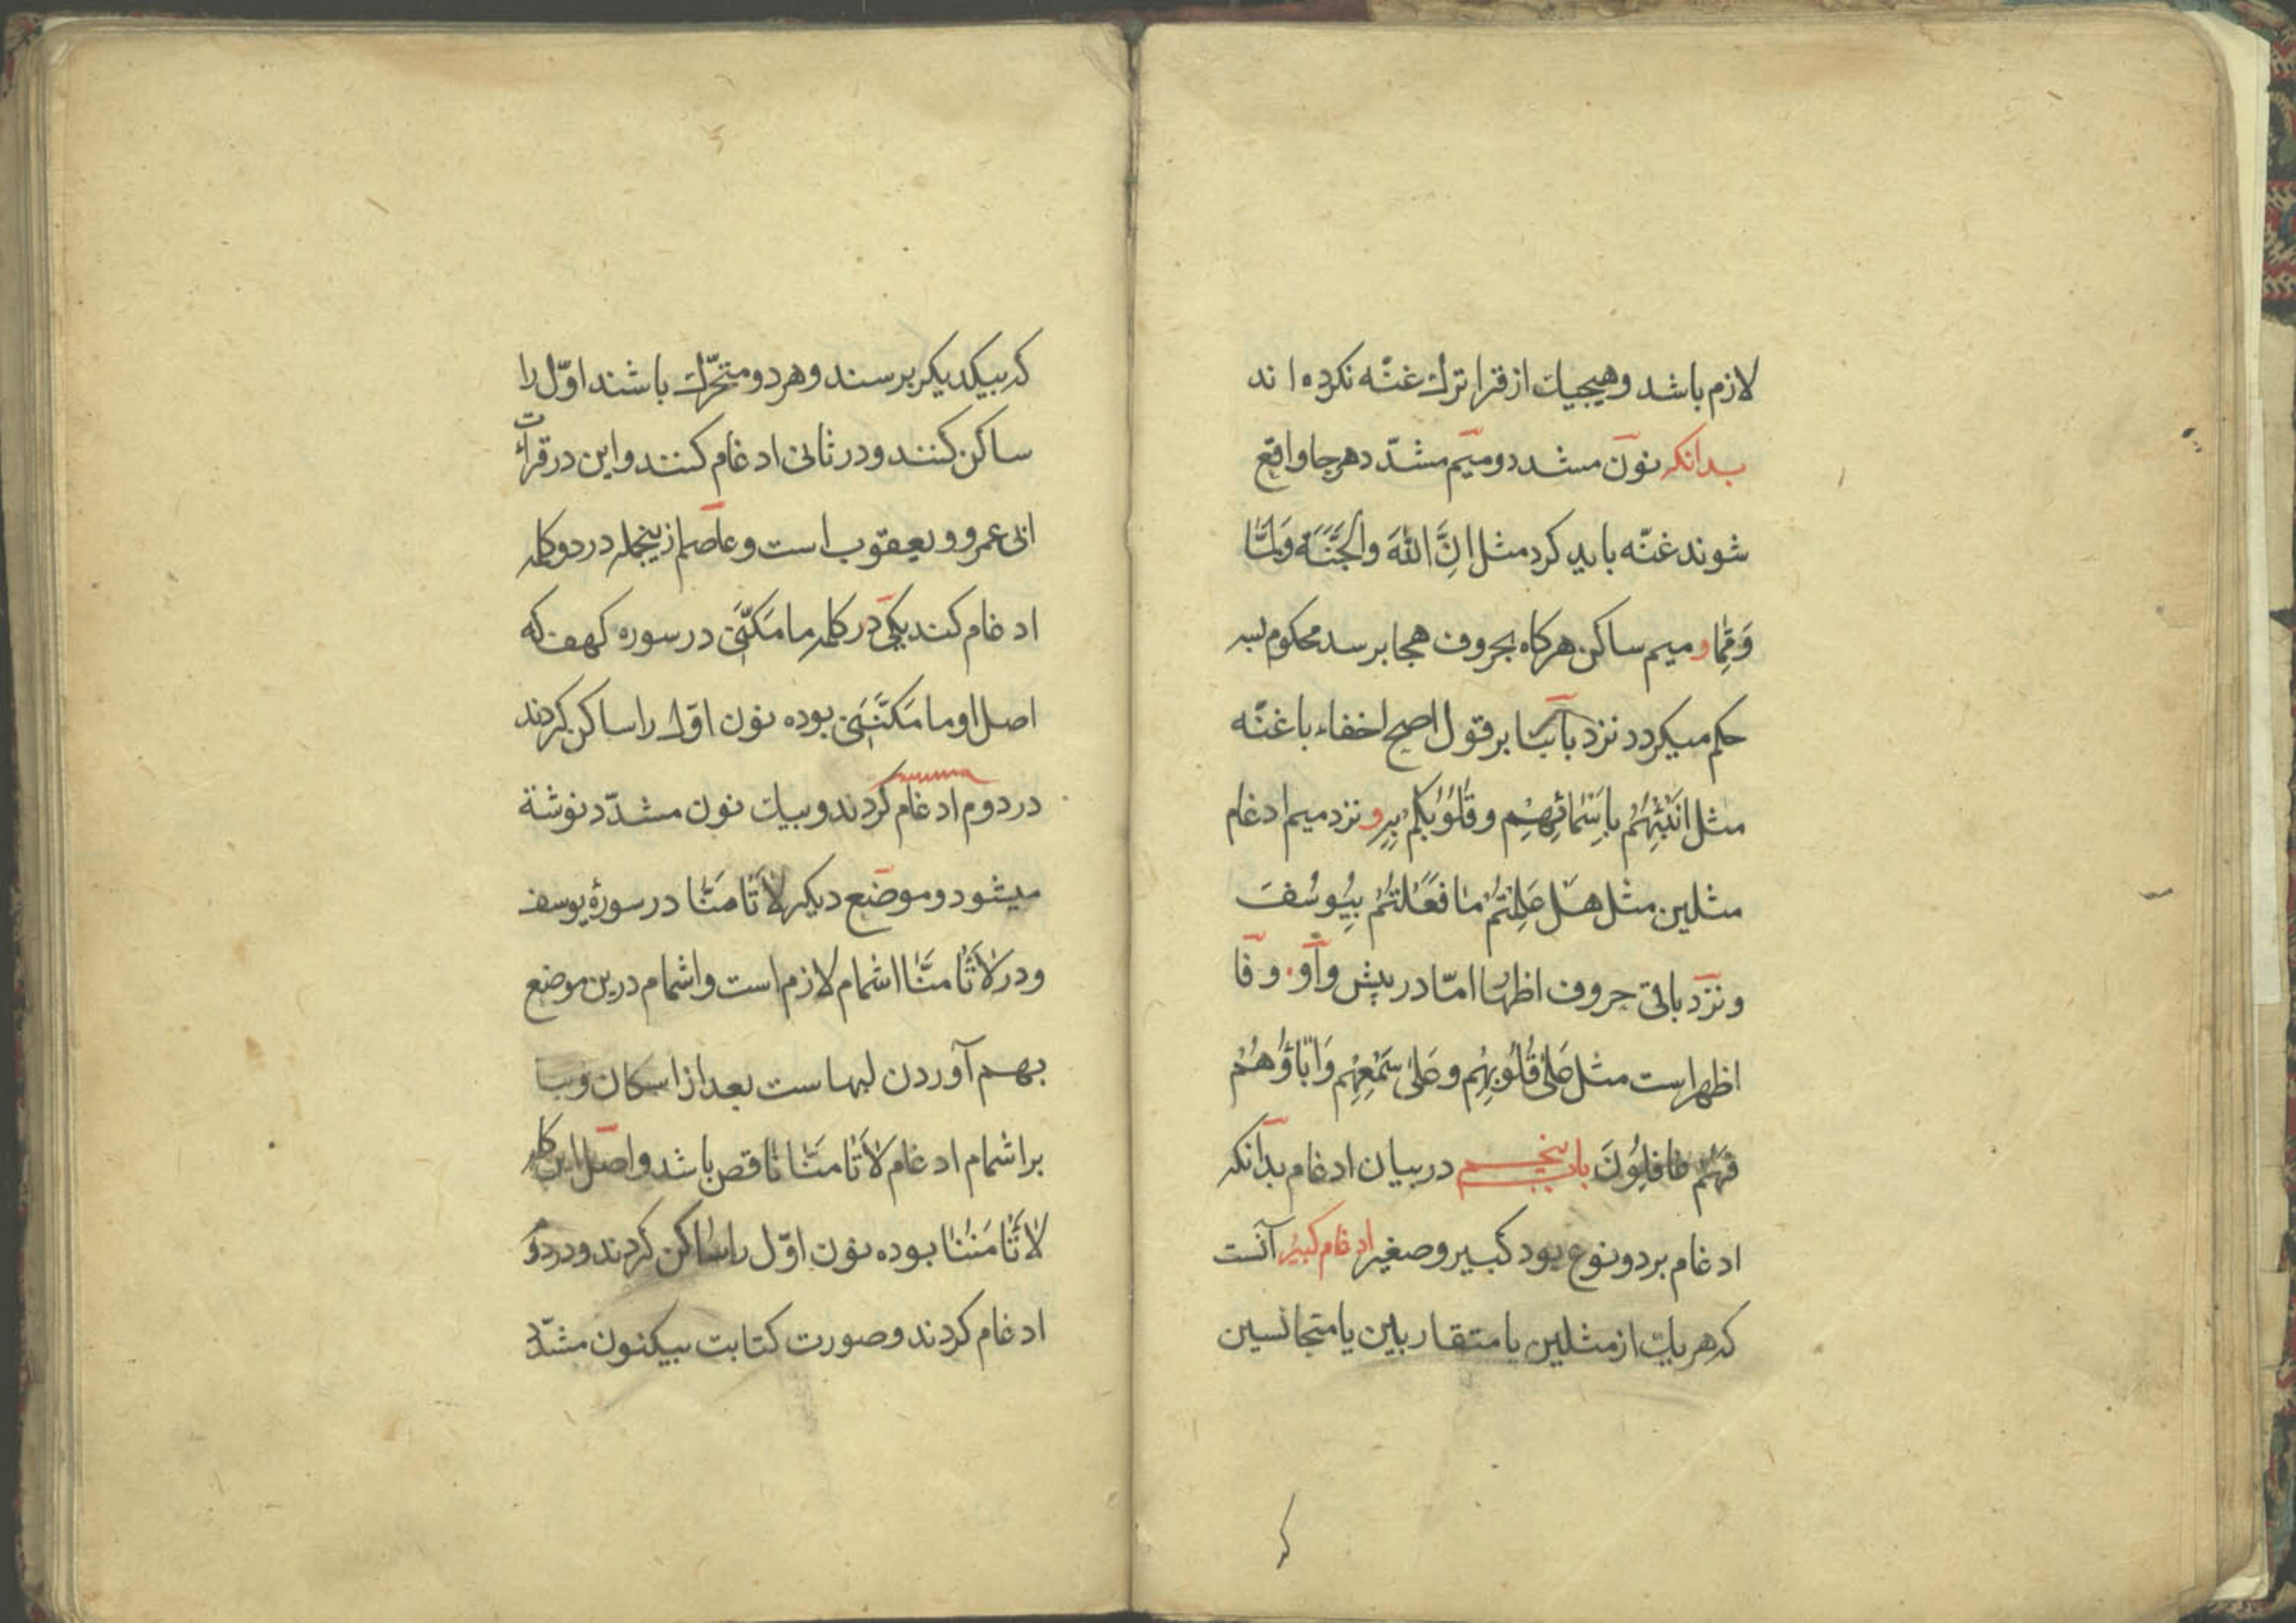 لازم باشد و هیچیک از قرا ترک غنّه نکرده اند
بدانکه نون مشدد و میم مشدّد هرجا واقع
شوند غنّه باید کرد مثل اِنَّ اللّٰهَ وَالجَنَّةَ وَلَمَّا
وَمِمَّا و میم ساکن هرکاه بحروف هجا برسد محکوم بسه
حکم میکردد نزد با بنا بر قول اصح اخفاء با غنّه
مثل اَنْبِئْهُمْ بِاَسْمَائِهِمْ و قُلُوبُكُمْ بِهِ و نزد میم ادغام
مثلین مثل هَلْ عَلِمْتُمْ مٰا فَعَلْتُمْ بِيُوسُفَ
و نزد باقی حروف اظهار امّا در پیش واو و فا
اظهراست مثل عَلٰى قُلُوبِهِمْ وَعَلٰى سَمْعِهِمْ وَاٰبَاؤُهُمْ
فَهُمْ غَافِلُونَ باب پنجم در بیان ادغام بدانکه
ادغام بر دو نوع بود کبیر و صغیر ادغام کبیر آنست
که هریک از مثلین یا متقاربین یا متجانسین
که
که بیکدیکر برسند و هر دو متحرّک باشند اوّل را
ساکن کنند و در ثانی ادغام کنند و این در قرائت
ابی عمرو و یعقوب است و عاصم ازینجمله در دو کلمه
ادغام کند یکی در کلمه ما مَكَّنِّى در سوره کهف که
اصل او ما مَكَّنَنِى بوده نون اوّل را ساکن کردند
در دوم ادغام کردند و بیک نون مشدّد نوشته
میشود و موضع دیکر لاٰ تَأْمَنَّا در سورهٔ یوسف
و در لاٰ تَأْمَنَّا اشمام لازم است و اشمام درین موضع
بهم آوردن لبهاست بعد از اسکان و بنا
بر اشمام ادغام لاٰ تَأْمَنَّا ناقص باشد و اصل این کلمه
لاٰ تَأْمَنُنَا بوده نون اوّل را ساکن کردند و در دوم
ادغام کردند و صورت کتابت بیکنون مشدّد